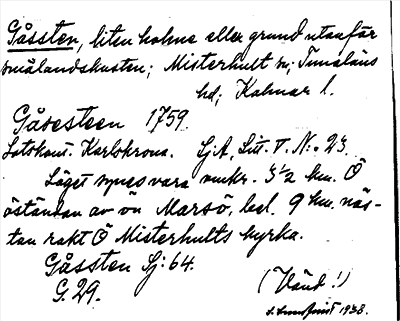 Gåssten, liten holme eller grund utanför
smålandskusten; Misterhult sn; Tunaläns
hd; Kalmar l.
Gåsesteen 1759.
Lotskont. Karlskrona. SjA, Litt. V. N:o 23.
Läget synes vara omkr. 3 1/2 km. Ö
östandan av ön Marsö, bel. 9 km. näs-
tan rakt Ö Misterhults kyrka.
Gåssten Sj: 64.
G. 29.
(Vänd!)
1938.